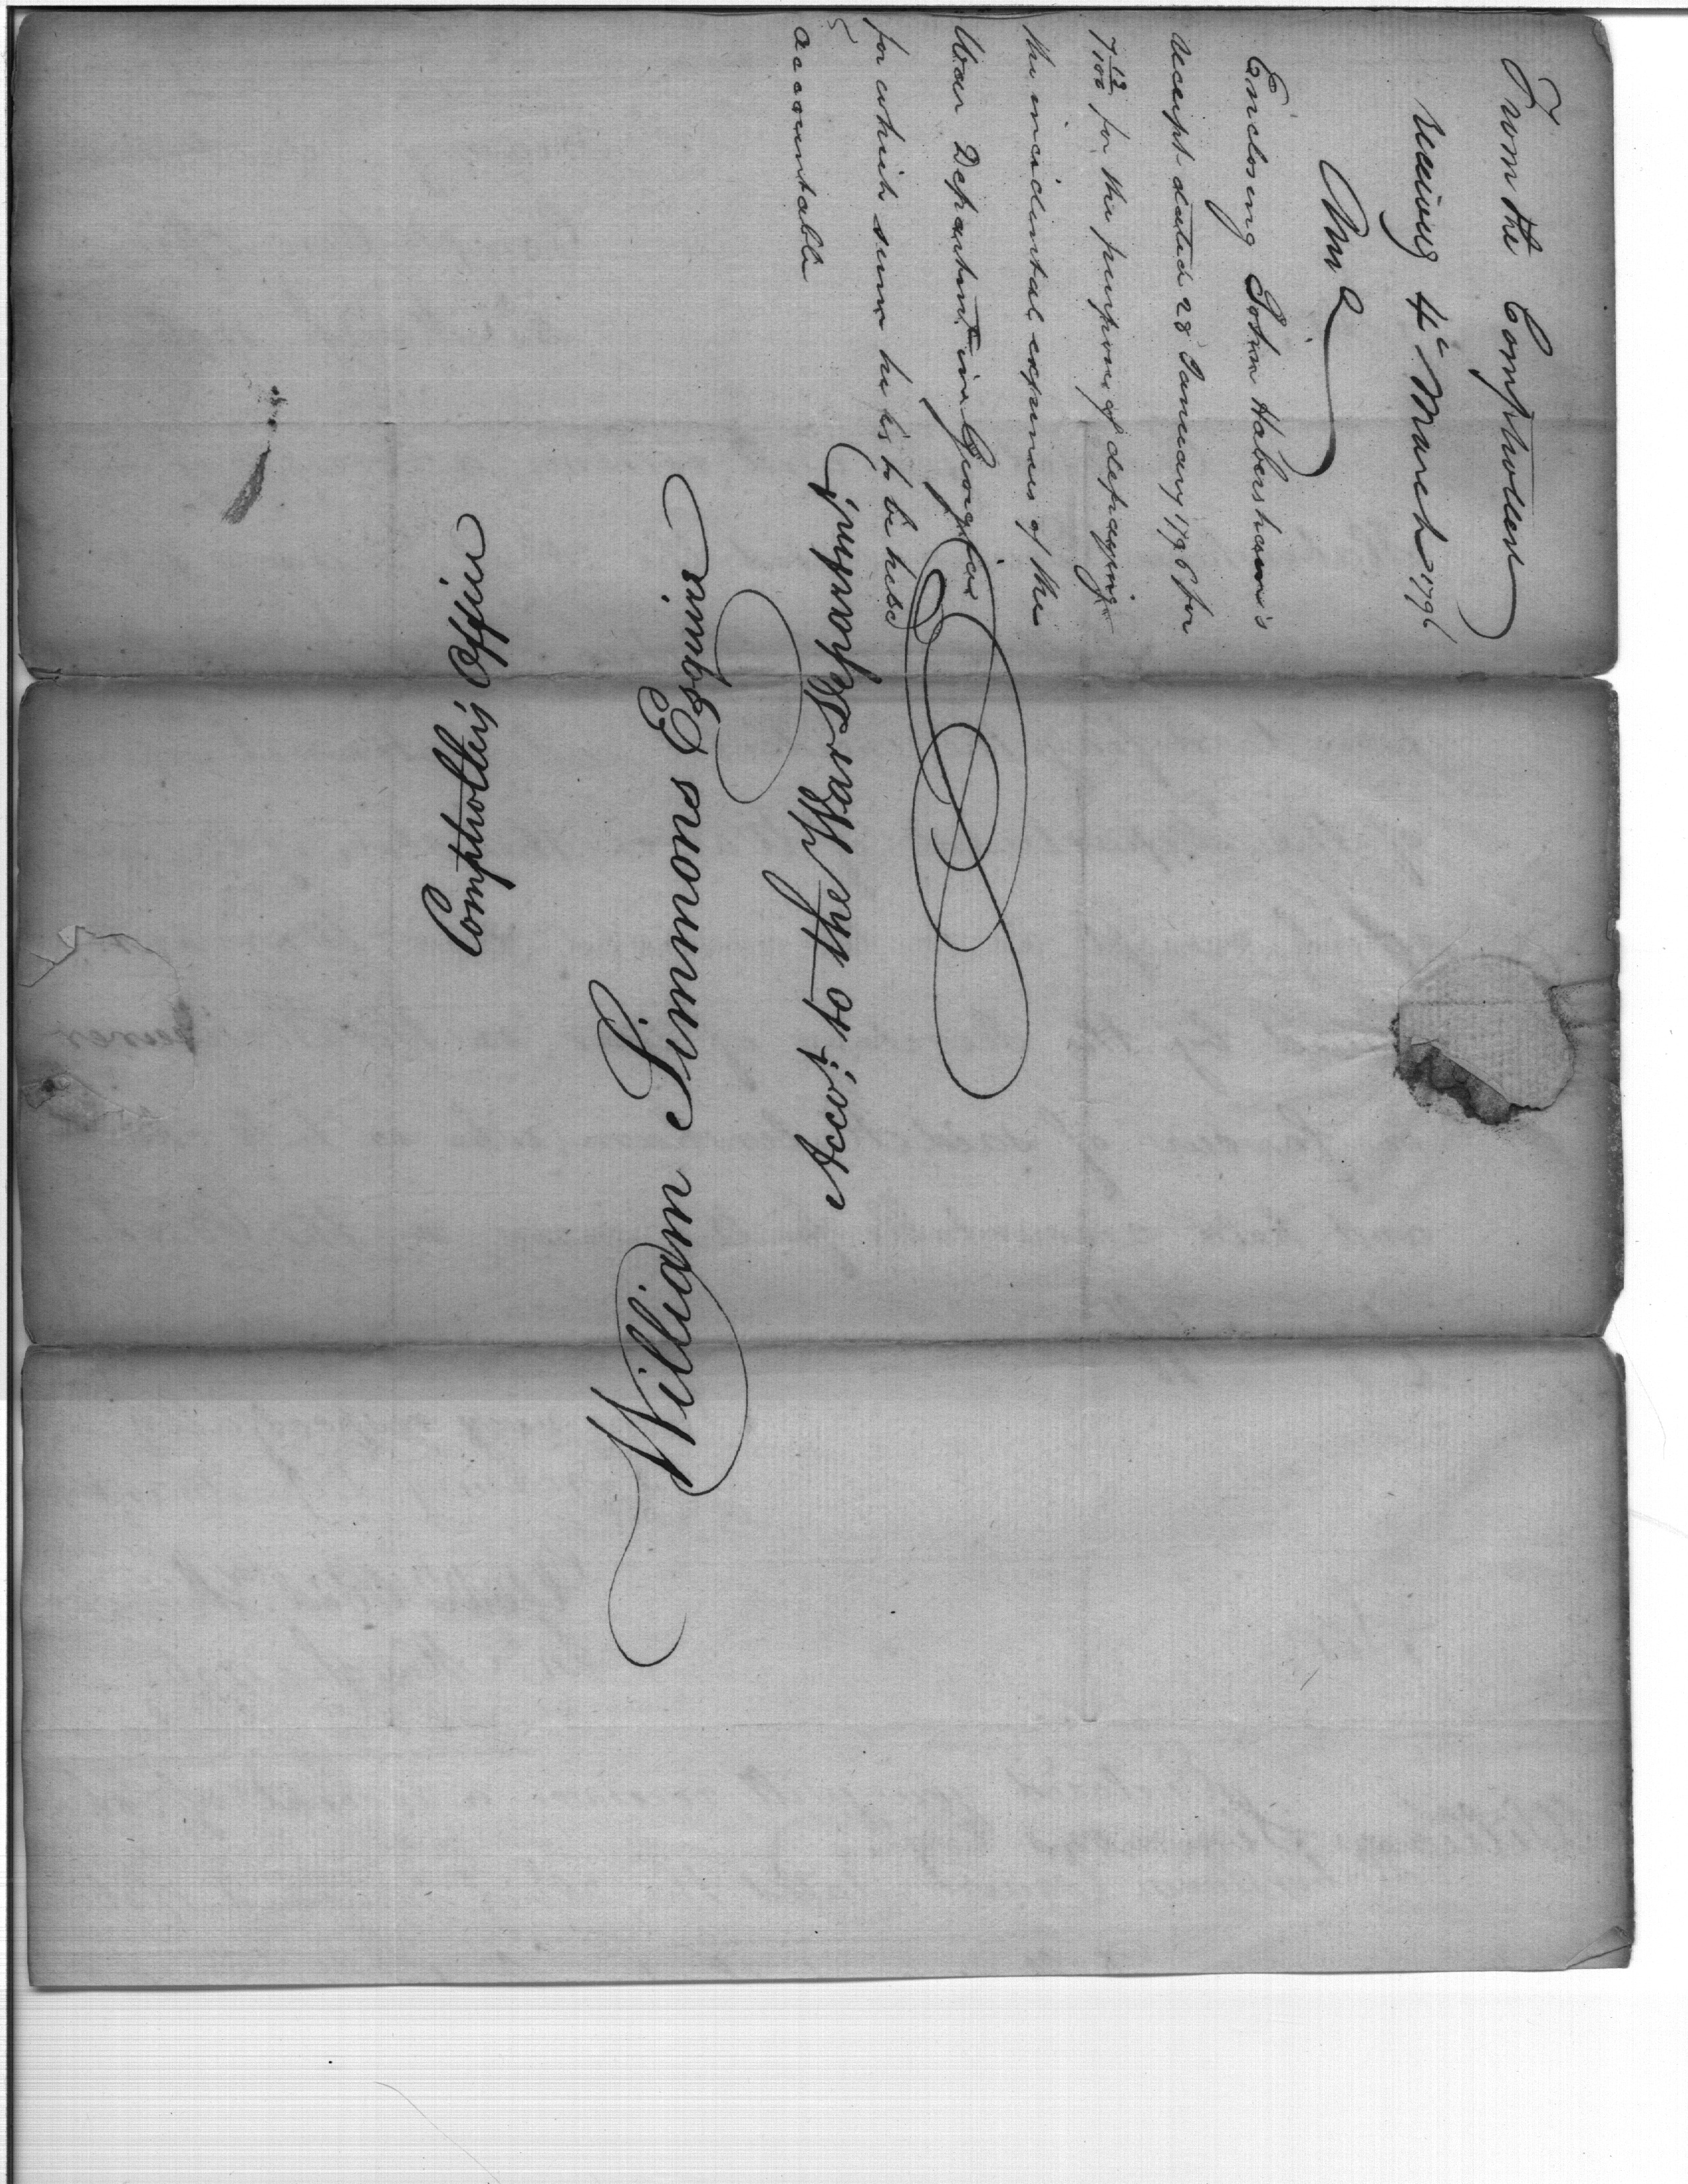 From the Comptroller
Receivg 4th March 1796
Enclosing John Habersham's
receipt dated 28 January 1796 for
7 12/100 for the purpose of defraying
the incidental expenses of the
War Departmt in Georgia
for which sum he is to be held
accountable
Comptroller's Office
William Simmons Esquire
Accot. to the War Departmt.